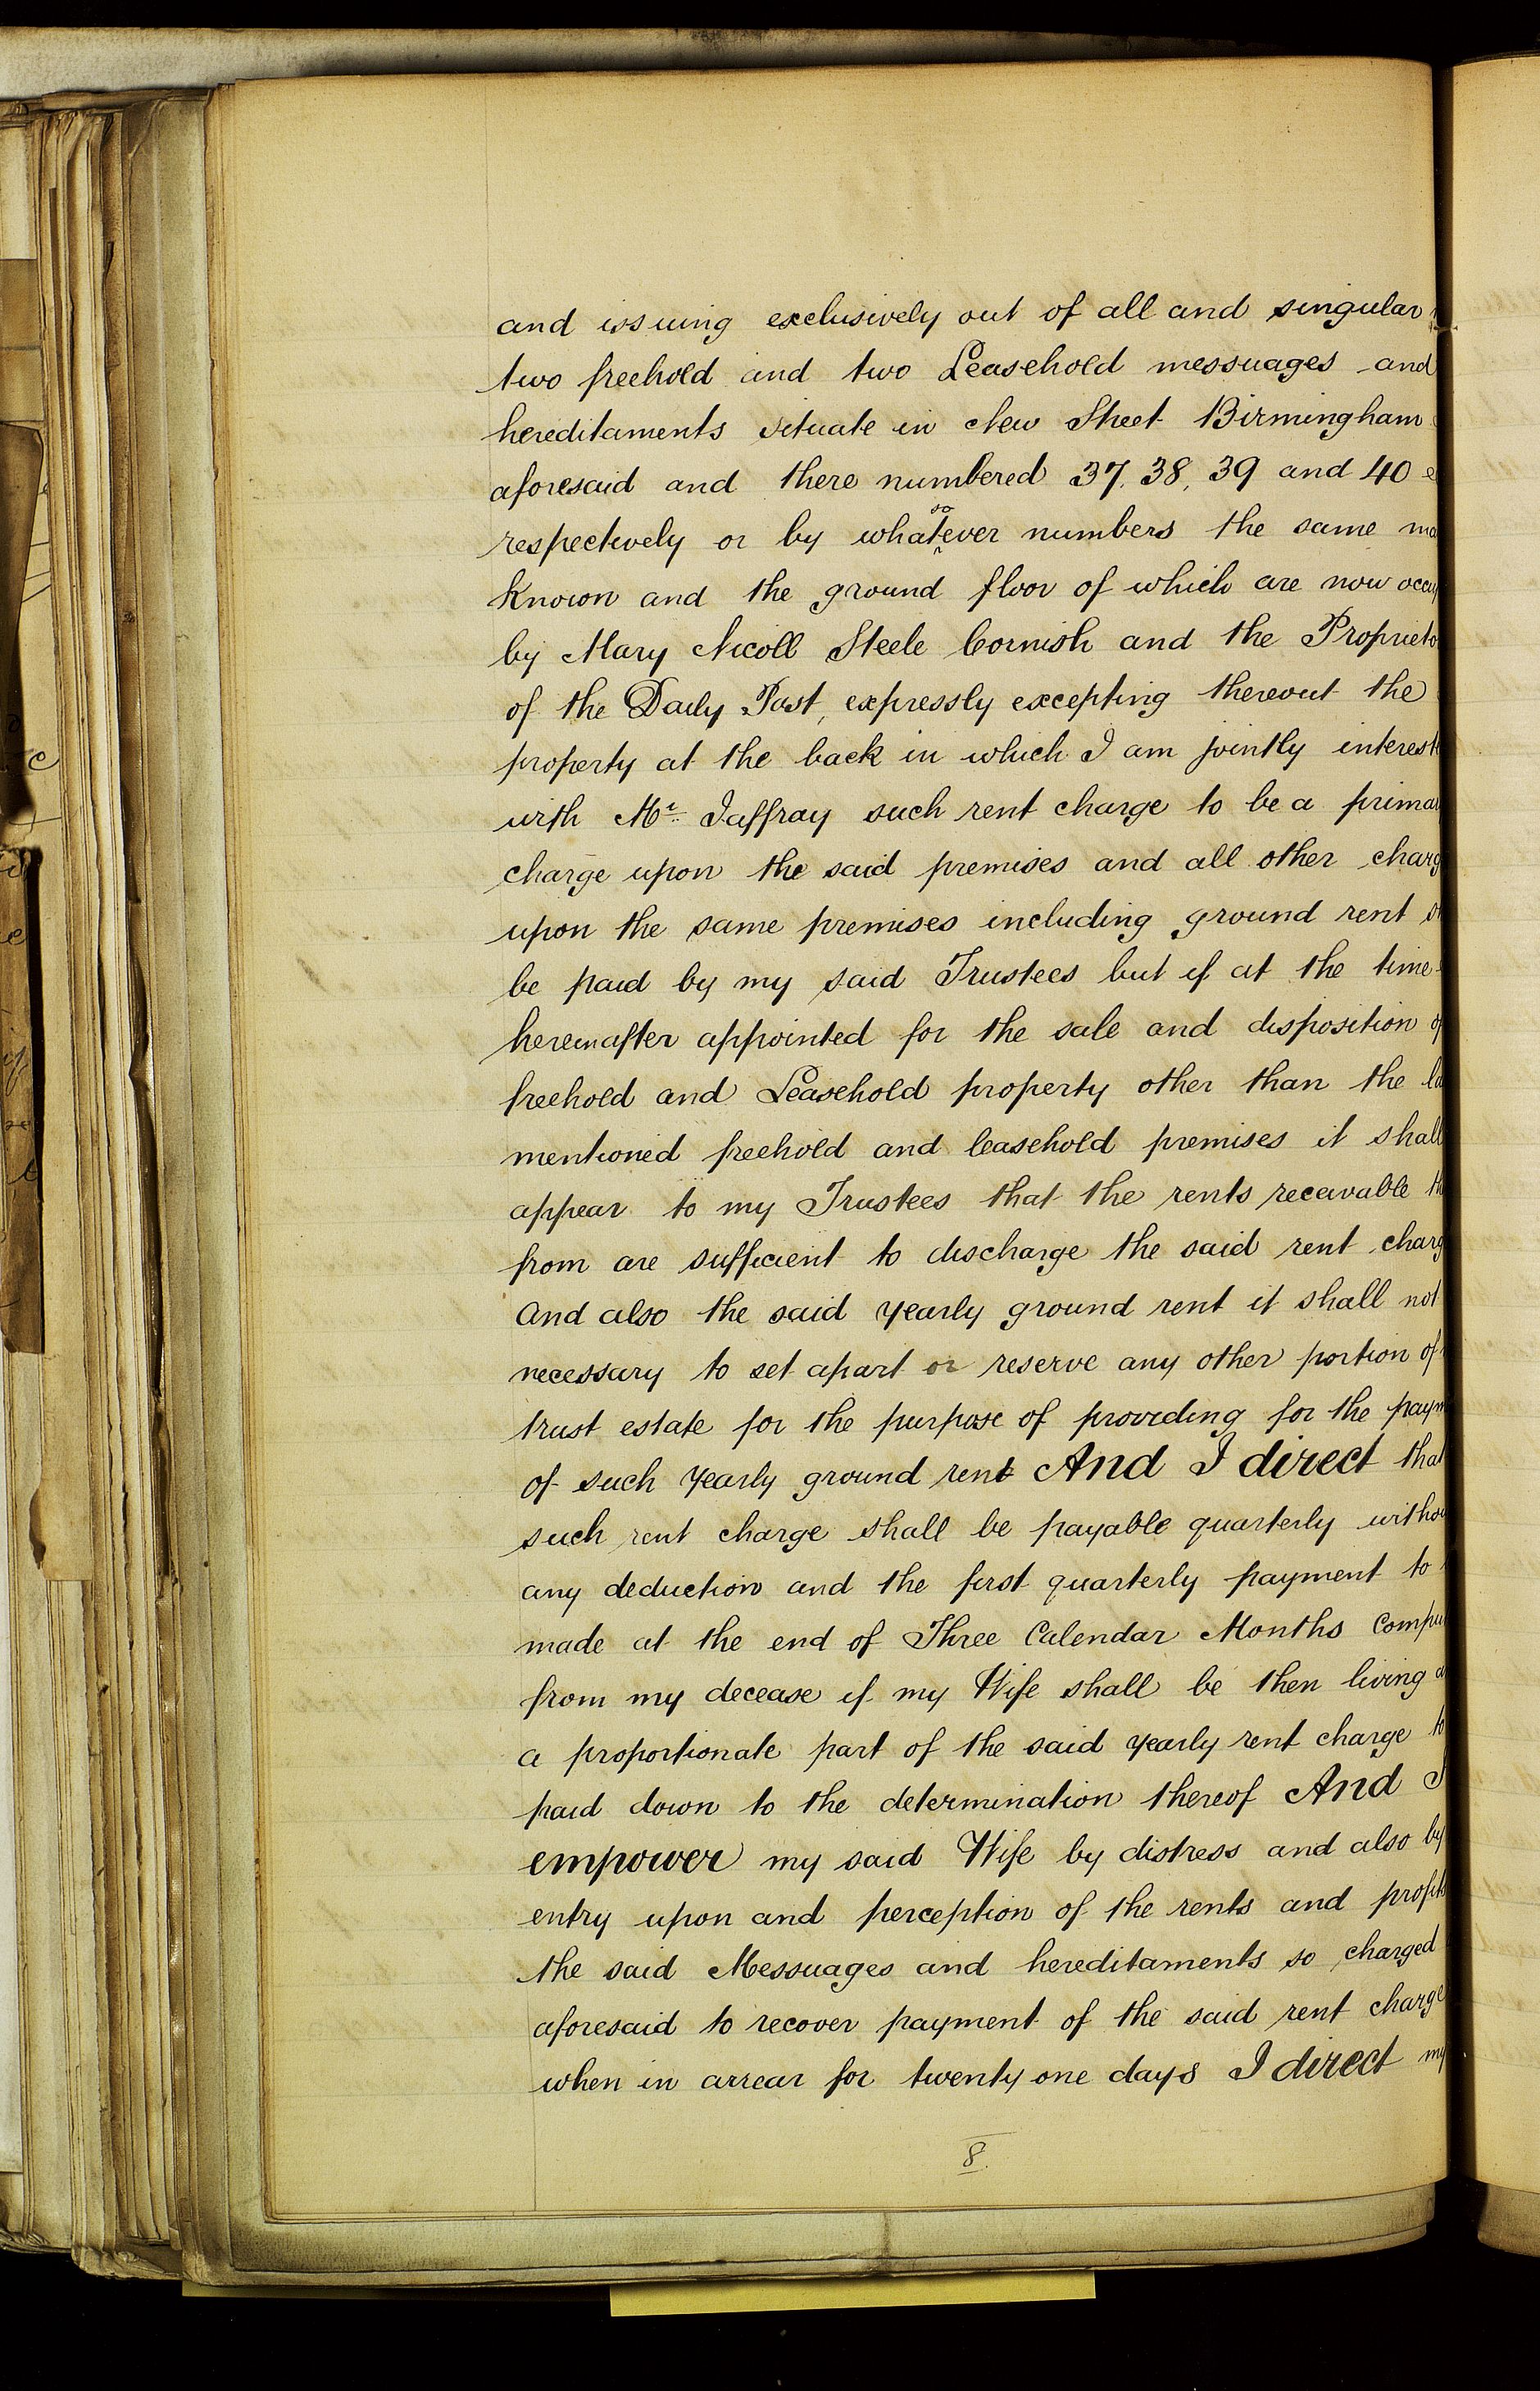 and issuing exclusively out of all and singular
two freehold and two Leasehold messuages and
hereditaments situate in New Street Birmingham
aforesaid and there numbered 37, 38, 39 and 40
respectively or by whatsoever numbers the same ma
known and the ground floor of which are now occup
by Mary Nicoll Steele Cornish and the Proprieto
of the Daily Post, expressly excepting thereout the
property at the back in which I am jointly interest
with Mr. Jaffray such rent charge to be a primar
charge upon the said premises and all other charg
upon the same premises including ground rent
be paid by my said Trustees but if at the time
hereinafter appointed for the sale and disposition of
freehold and Leasehold property other than the la
mentioned freehold and leasehold premises it shall
appear to my Trustees that the rents receivable th
from are sufficient to discharge the said rent charg
and also the said yearly ground rent it shall not
necessary to set apart or reserve any other portion of
trust estate for the purpose of providing for the paym
of such yearly ground rent And I direct that
such rent charge shall be payable quarterly withou
any deduction and the first quarterly payment to
made at the end of Three Calendar Months Compu
from my decease if my Wife shall be then living a
a proportionate part of the said yearly rent charge to
paid down to the determination thereof And I
empower my said Wife by distress and also by
entry upon and perception of the rents and profits
the said Messuages and hereditaments so charged
aforesaid to recover payment of the said rent charge
when in arrear for twenty one days I direct my
8.